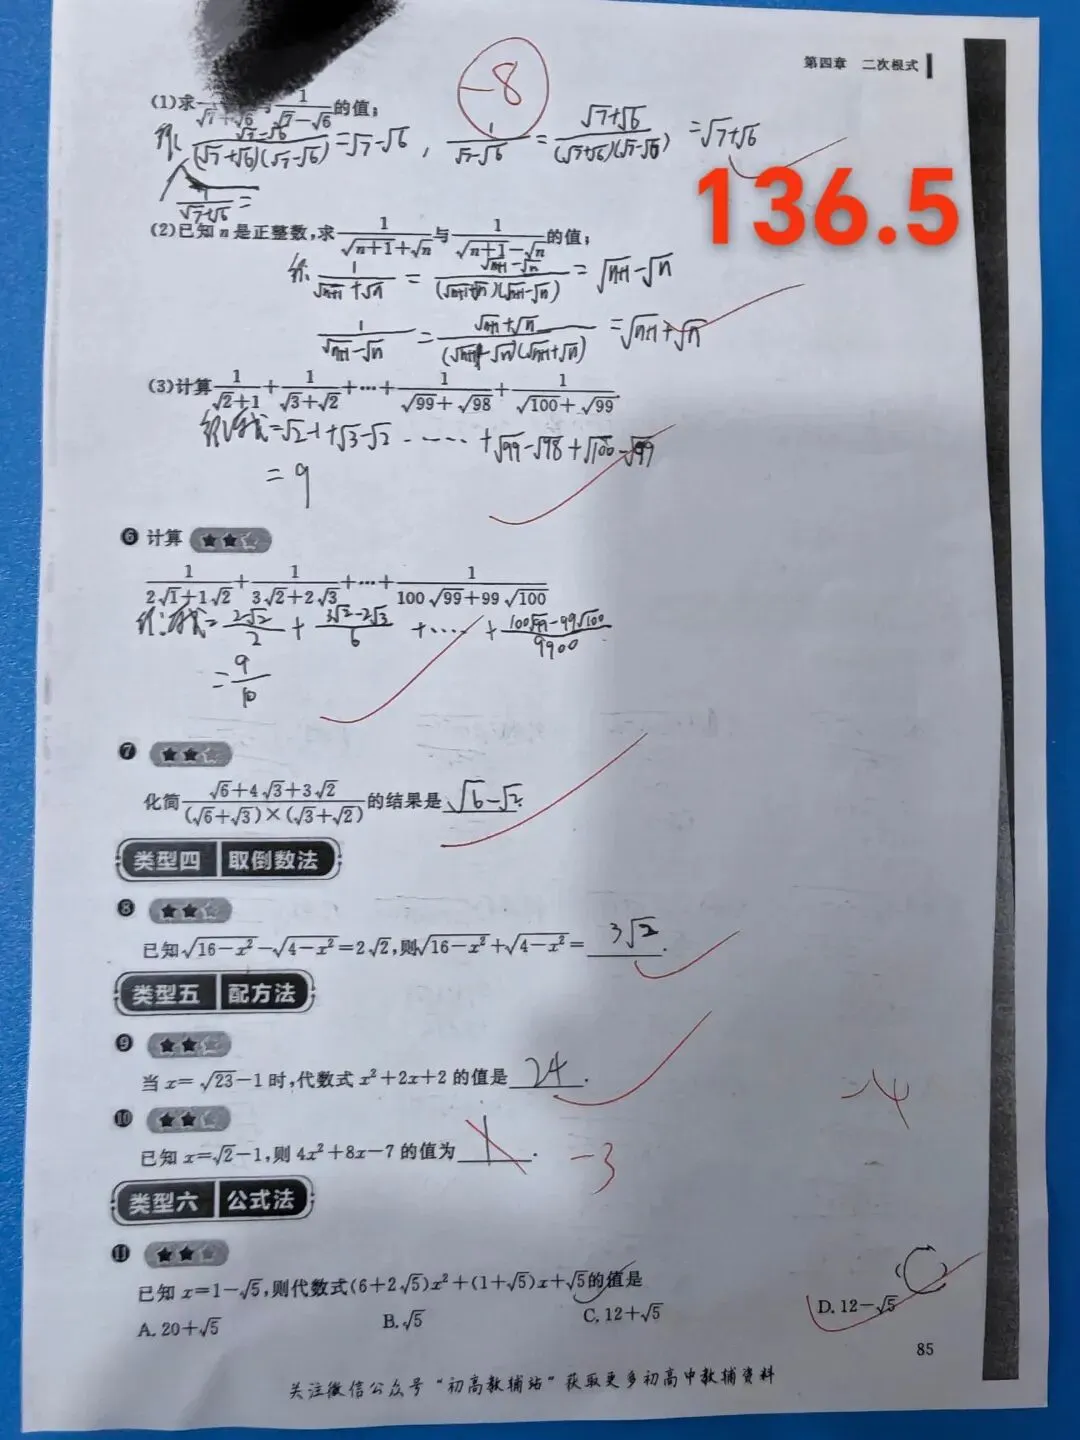 第四章 二次根式
-8
(1)求1/(√7+√6)与1/(√7-√6)的值;
解: (√7-√6)/((√7+√6)(√7-√6))=√7-√6 , 1/(√7-√6)=(√7+√6)/((√7+√6)(√7-√6))=√7+√6
1/(√7+√6)=
136.5
(2)已知n是正整数,求1/(√(n+1)+√n)与1/(√(n+1)-√n)的值;
解: 1/(√(n+1)+√n)=(√(n+1)-√n)/((√(n+1)+√n)(√(n+1)-√n))=√(n+1)-√n
1/(√(n+1)-√n)=(√(n+1)+√n)/((√(n+1)-√n)(√(n+1)+√n))=√(n+1)+√n
(3)计算1/(√2+1)+1/(√3+√2)+…+1/(√99+√98)+1/(√100+√99).
解:原式=√2-1+√3-√2 ……+√99-√98+√100-√99
=9
6 计算 ★★☆
1/(2√1+1√2)+1/(3√2+2√3)+…+1/(100√99+99√100)
解:原式=(2-√2)/2+(3√2-2√3)/6+……+(100√99-99√100)/9900
=9/10
7 ★★☆
化简(√6+4√3+3√2)/((√6+√3)×(√3+√2))的结果是√6-√2.
类型四 取倒数法
8 ★★☆
已知√(16-x²)-√(4-x²)=2√2,则√(16-x²)+√(4-x²)=3√2.
类型五 配方法
9 ★★☆
当x=√23-1时,代数式x²+2x+2的值是24.
-4
10 ★★☆
已知x=√2-1,则4x²+8x-7的值为1. -3
类型六 公式法
11 ★★☆
已知x=1-√5,则代数式(6+2√5)x²+(1+√5)x+√5的值是( C )
A. 20+√5 B. √5 C. 12+√5 D. 12-√5
85
关注微信公众号“初高教辅站”获取更多初高中教辅资料